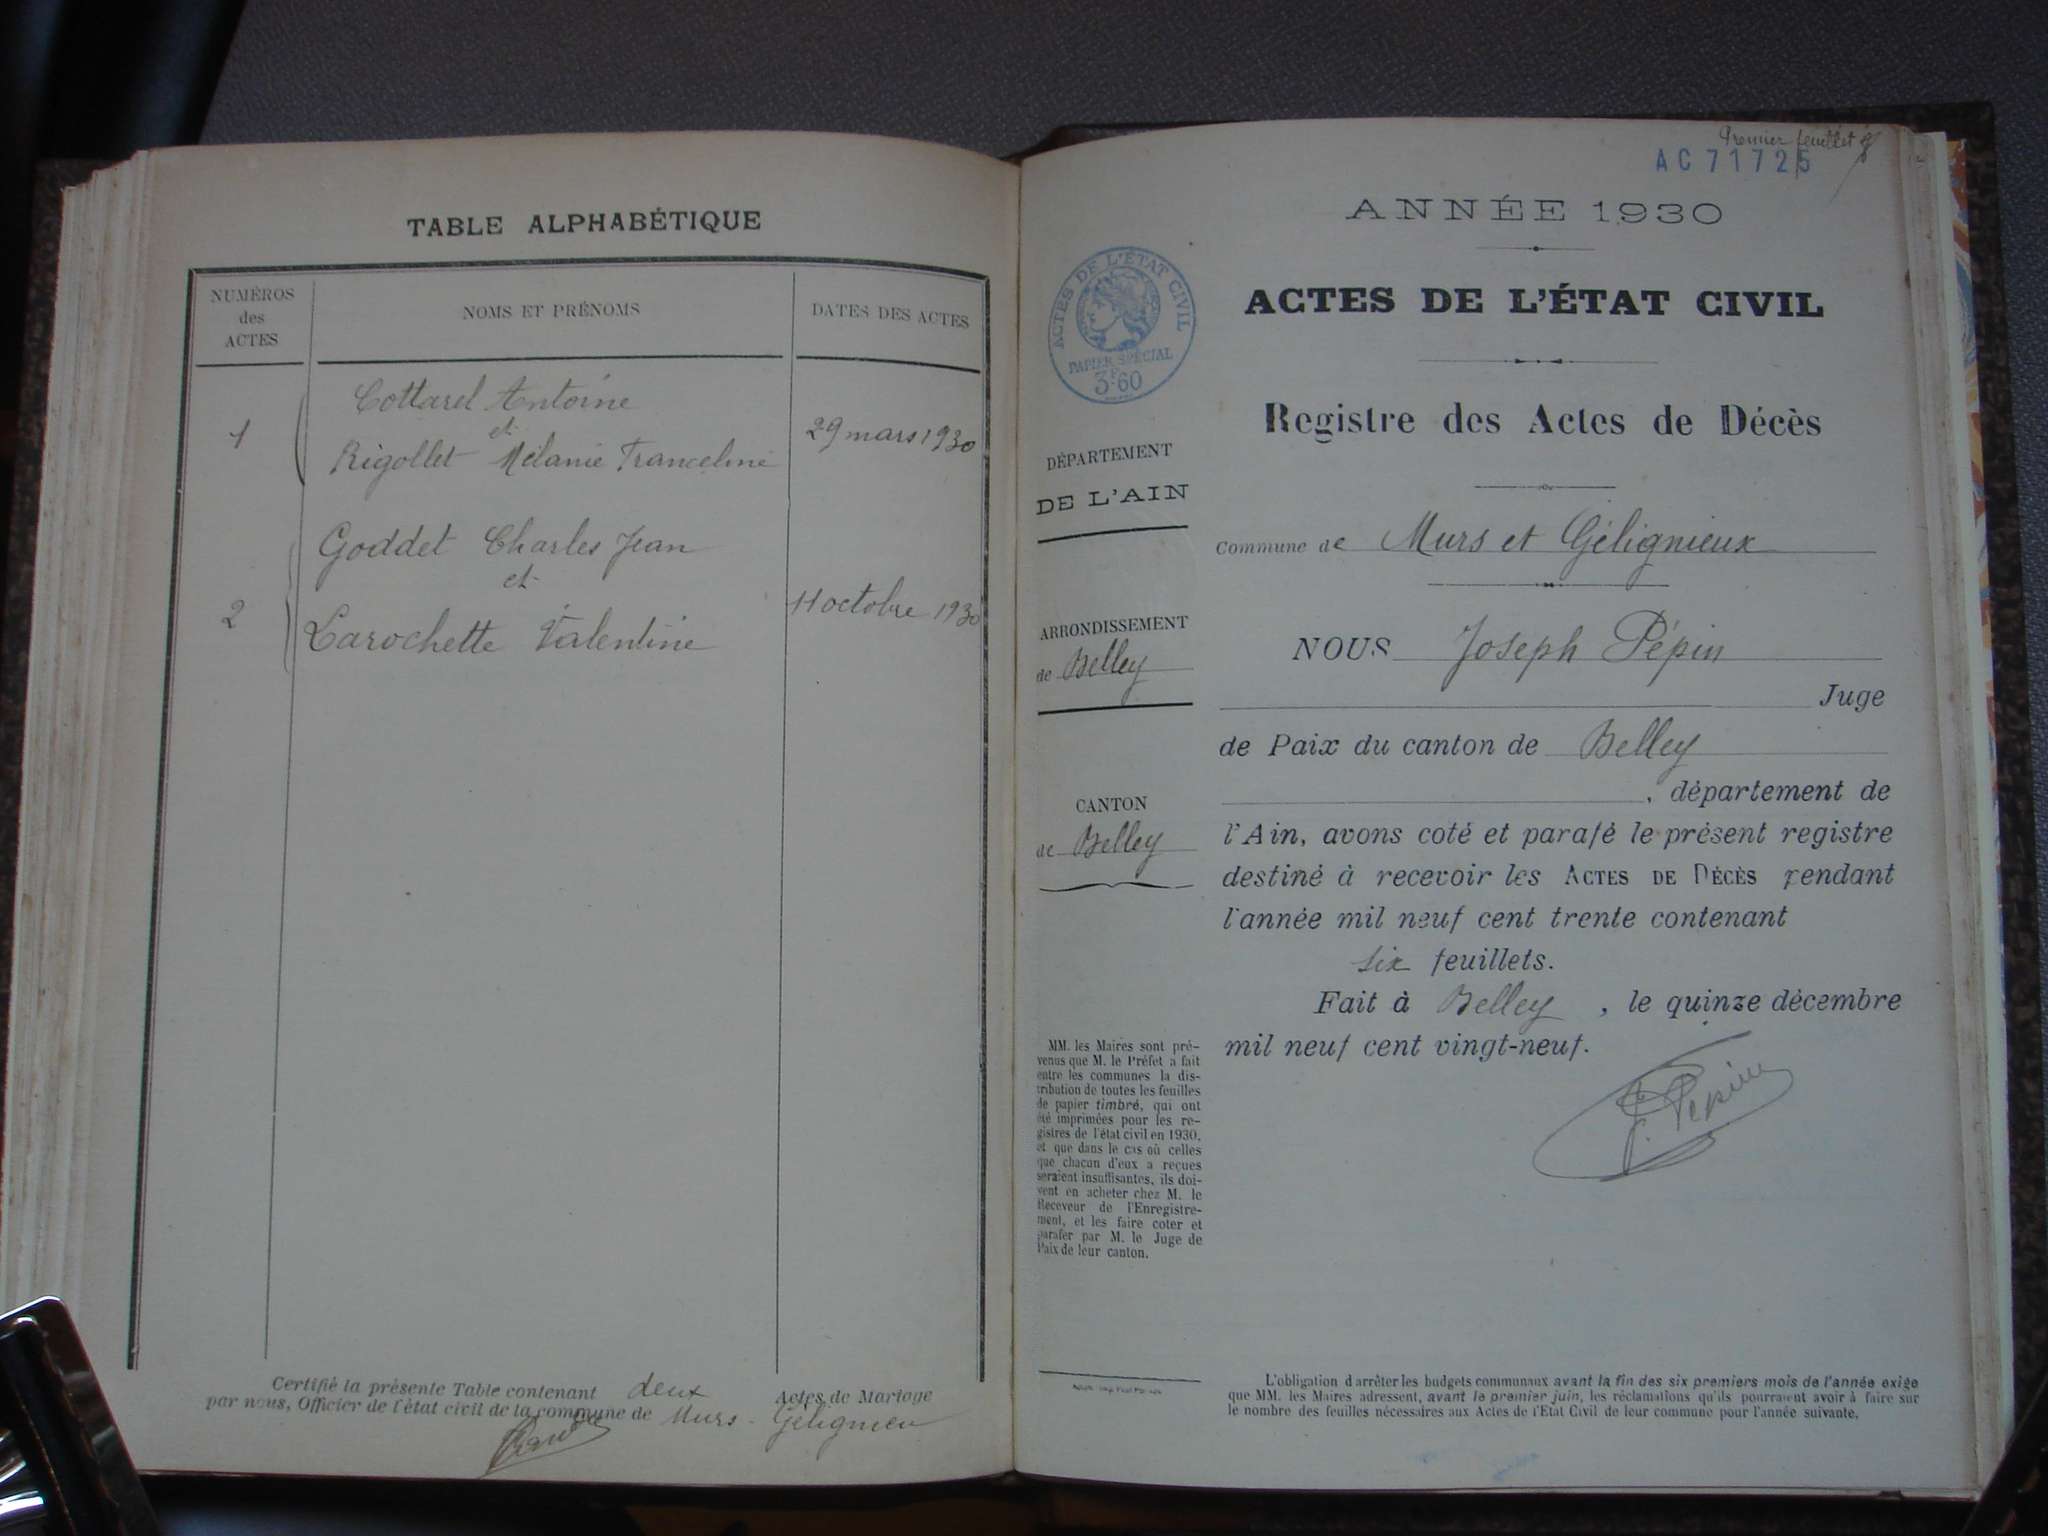 TABLE ALPHABÉTIQUE
NUMÉROS
des
ACTES
NOMS ET PRÉNOMS
DATES DES ACTES
1
Cottarel Antoine
et
Rigollet Mélanie Franceline
29 mars 1930
2
Goddet Charles Jean
et
Larochette Valentine
11 octobre 1930
Certifié la présente Table contenant deux Actes de Mariage
par nous, Officier de l'état civil de la commune de Murs - Gélignieu
Premier feuillet
AC 71725
ANNÉE 1930
ACTES DE L'ÉTAT CIVIL
PAPIER SPÉCIAL
3F60
ACTES DE L'ÉTAT CIVIL
Registre des Actes de Décès
DÉPARTEMENT
DE L'AIN
ARRONDISSEMENT
de Belley
CANTON
de Belley
Commune de Murs et Gélignieux
NOUS Joseph Pépin
Juge
de Paix du canton de Belley
, département de
l'Ain, avons coté et parafé le présent registre
destiné à recevoir les ACTES DE DÉCÈS pendant
l'année mil neuf cent trente contenant
six feuillets.
Fait à Belley, le quinze décembre
mil neuf cent vingt-neuf.
J. Pépin
MM. les Maires sont pré-
venus que M. le Préfet a fait
entre les communes la dis-
tribution de toutes les feuilles
de papier timbré, qui ont
été imprimées pour les re-
gistres de l'état civil en 1930,
et que dans le cas où celles
que chacun d'eux a reçues
seraient insuffisantes, ils doi-
vent en acheter chez M. le
Receveur de l'Enregistre-
ment, et les faire coter et
parafer par M. le Juge de
Paix de leur canton.
L'obligation d'arrêter les budgets communaux avant la fin des six premiers mois de l'année exige
que MM. les Maires adressent, avant le premier juin, les réclamations qu'ils pourraient avoir à faire sur
le nombre des feuilles nécessaires aux Actes de l'Etat Civil de leur commune pour l'année suivante.